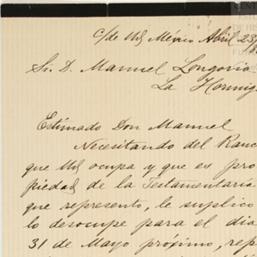 C/de Ud México Abril 23/
Sr. D. Manuel Longoria
La Hormig
Estimado Don Manuel
Necesitando del Ranc
que Ud ocupa y que es pro
piedad de la Testamentaría
que represento, le suplico
lo desocupe para el dia
31 de Mayo próximo, rep